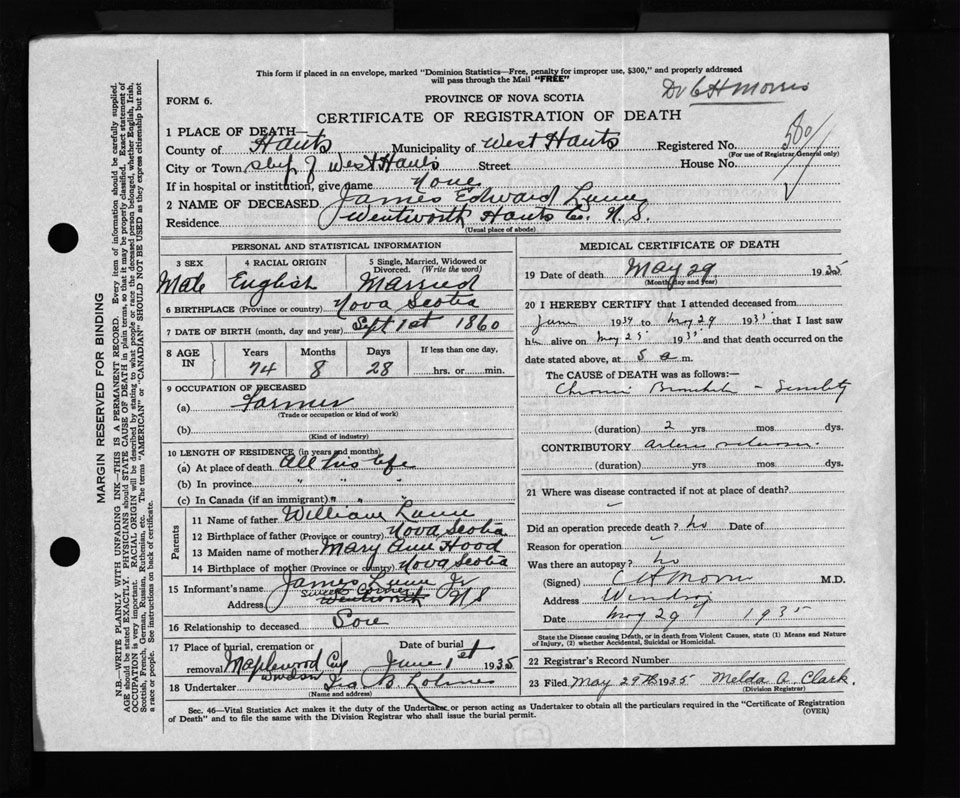 This form if placed in an envelope, marked "Dominion Statistics—Free, penalty for improper use, $300," and properly addressed
will pass through the Mail "FREE"
Dr C H Morris
FORM 6.
PROVINCE OF NOVA SCOTIA
CERTIFICATE OF REGISTRATION OF DEATH
1 PLACE OF DEATH—
County of Hants Municipality of West Hants Registered No. 580
(For use of Registrar General only)
City or Town of West Hants Street House No.
If in hospital or institution, give name none
2 NAME OF DECEASED James Edward Lunn
Residence Wentworth Hants Co. N.S.
(Usual place of abode)
PERSONAL AND STATISTICAL INFORMATION
3 SEX 4 RACIAL ORIGIN 5 Single, Married, Widowed or
Divorced. (Write the word)
Male English Married
6 BIRTHPLACE (Province or country) Nova Scotia
7 DATE OF BIRTH (month, day and year) Sept 1st 1860
8 AGE IN Years Months Days If less than one day,
74 8 28 hrs. or min.
9 OCCUPATION OF DECEASED
(a) Farmer
(Trade or occupation or kind of work)
(b)
(Kind of industry)
10 LENGTH OF RESIDENCE (in years and months)
(a) At place of death All his life
(b) In province " " "
(c) In Canada (if an immigrant) " " "
Parents
11 Name of father William Lunn
12 Birthplace of father (Province or country) Nova Scotia
13 Maiden name of mother Mary Ann Hood
14 Birthplace of mother (Province or country) Nova Scotia
15 Informant's name James Lunn Jr
Address Wentworth NS
16 Relationship to deceased Son
17 Place of burial, cremation or Date of burial
removal Maplewood Cem Windsor June 1st 1935
18 Undertaker Ira B. Lohnes
(Name and address)
MEDICAL CERTIFICATE OF DEATH
19 Date of death May 29 1935
(Month, day and year)
20 I HEREBY CERTIFY that I attended deceased from
June 1934 to May 29 1935 that I last saw
h alive on May 25 1935 and that death occurred on the
date stated above, at 5 a m.
The CAUSE of DEATH was as follows:—
Chronic Bronchitis – Senility
(duration) 2 yrs mos dys.
CONTRIBUTORY
(duration) yrs mos dys.
21 Where was disease contracted if not at place of death?
Did an operation precede death? no Date of
Reason for operation
Was there an autopsy? no
(Signed) C H Morris M.D.
Address Windsor
Date May 29 1935
State the Disease causing Death, or in death from Violent Causes, state (1) Means and Nature
of Injury, (2) whether Accidental, Suicidal or Homicidal.
22 Registrar's Record Number
23 Filed May 29th 1935 Melda A. Clark.
(Division Registrar)
Sec. 46—Vital Statistics Act makes it the duty of the Undertaker or person acting as Undertaker to obtain all the particulars required in the "Certificate of Registration
of Death" and to file the same with the Division Registrar who shall issue the burial permit.
(OVER)
MARGIN RESERVED FOR BINDING
N.B.—WRITE PLAINLY WITH UNFADING INK—THIS IS A PERMANENT RECORD. Every item of information should be carefully supplied.
AGE should be stated EXACTLY. PHYSICIANS should STATE CAUSE OF DEATH in plain terms, so that it may be properly classified. Exact statement of
OCCUPATION is very important. RACIAL ORIGIN will be described by stating to what people or race the deceased person belonged, whether English, Irish,
Scottish, French, German, Russian, Ruthenian, etc. The terms "AMERICAN" or "CANADIAN" SHOULD NOT BE USED as they express citizenship but not
a race or people. See instructions on back of certificate.